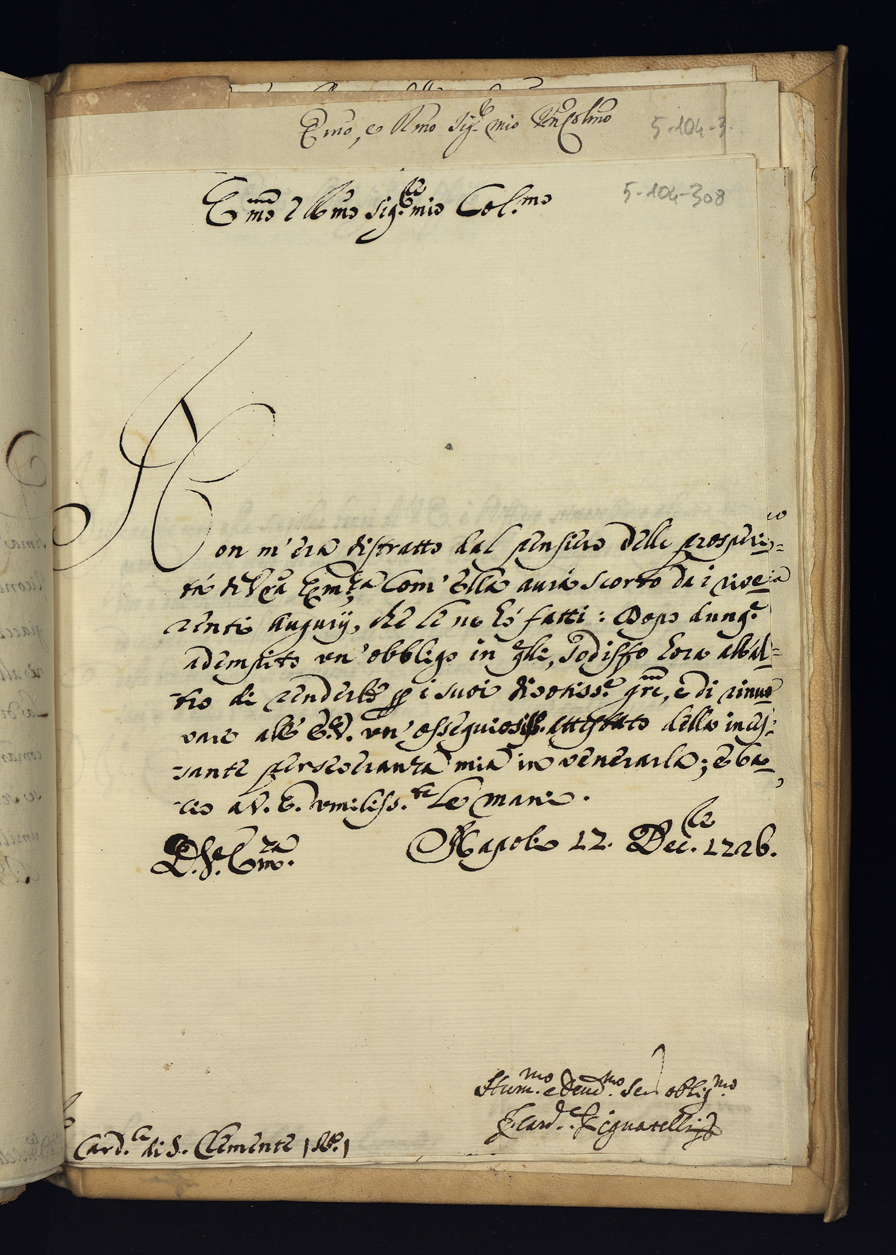 Emo, e Rmo Sig.re mio Pñ Colmo
5-104-3
Emo e Rmo Sig.re mio Col.mo
5-104-308
Non m'era distratto dal pensiero delle prosperi=
tà di V'ra Emza com' Ella aurà scorto da i rive
renti Augurij, che le ne hò fatti: Dopo dunq.e
adempito un' obbligo in q̃lli, sodisfo hora all'al=
tro di renderle p i suoi divotiss.e gr̃e, e di rinuo
vare all' E.V. un' ossequiosiss. attestato della inces=
sante perseveranza mia in venerarla; e ba
cio a V. E. umiliss.te le mani.
D. V. Em.za
Napoli 17. Dec.bre 1726.
Hum.mo e Deud.mo Ser oblig.mo
F. Card.le Pignatelli
Card.le di S. Clemente